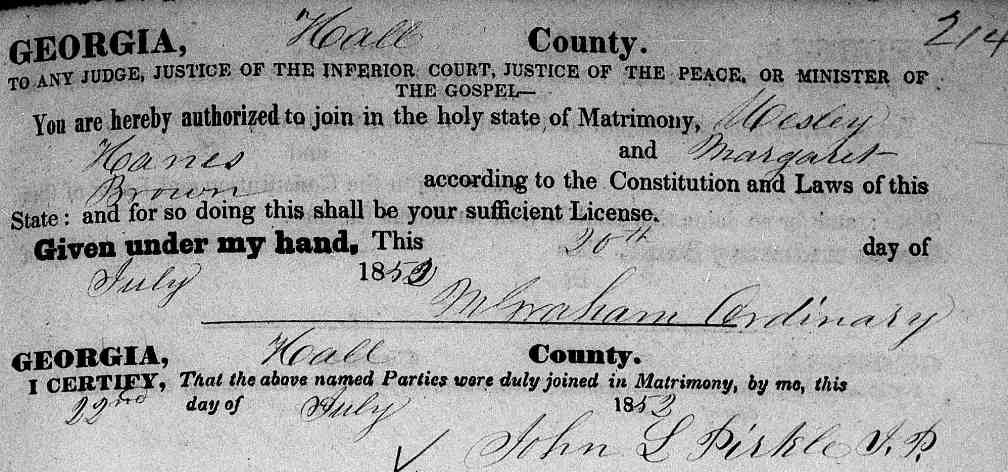 214
GEORGIA, Hall County.
TO ANY JUDGE, JUSTICE OF THE INFERIOR COURT, JUSTICE OF THE PEACE, OR MINISTER OF
THE GOSPEL—
You are hereby authorized to join in the holy state of Matrimony, Wesley
Hanes and Margaret
Brown according to the Constitution and Laws of this
State: and for so doing this shall be your sufficient License.
Given under my hand, This 20th day of
July 1852
M Graham Ordinary
GEORGIA, Hall County.
I CERTIFY, That the above named Parties were duly joined in Matrimony, by me, this
22nd day of July 1852
John L Pirkle J.P.